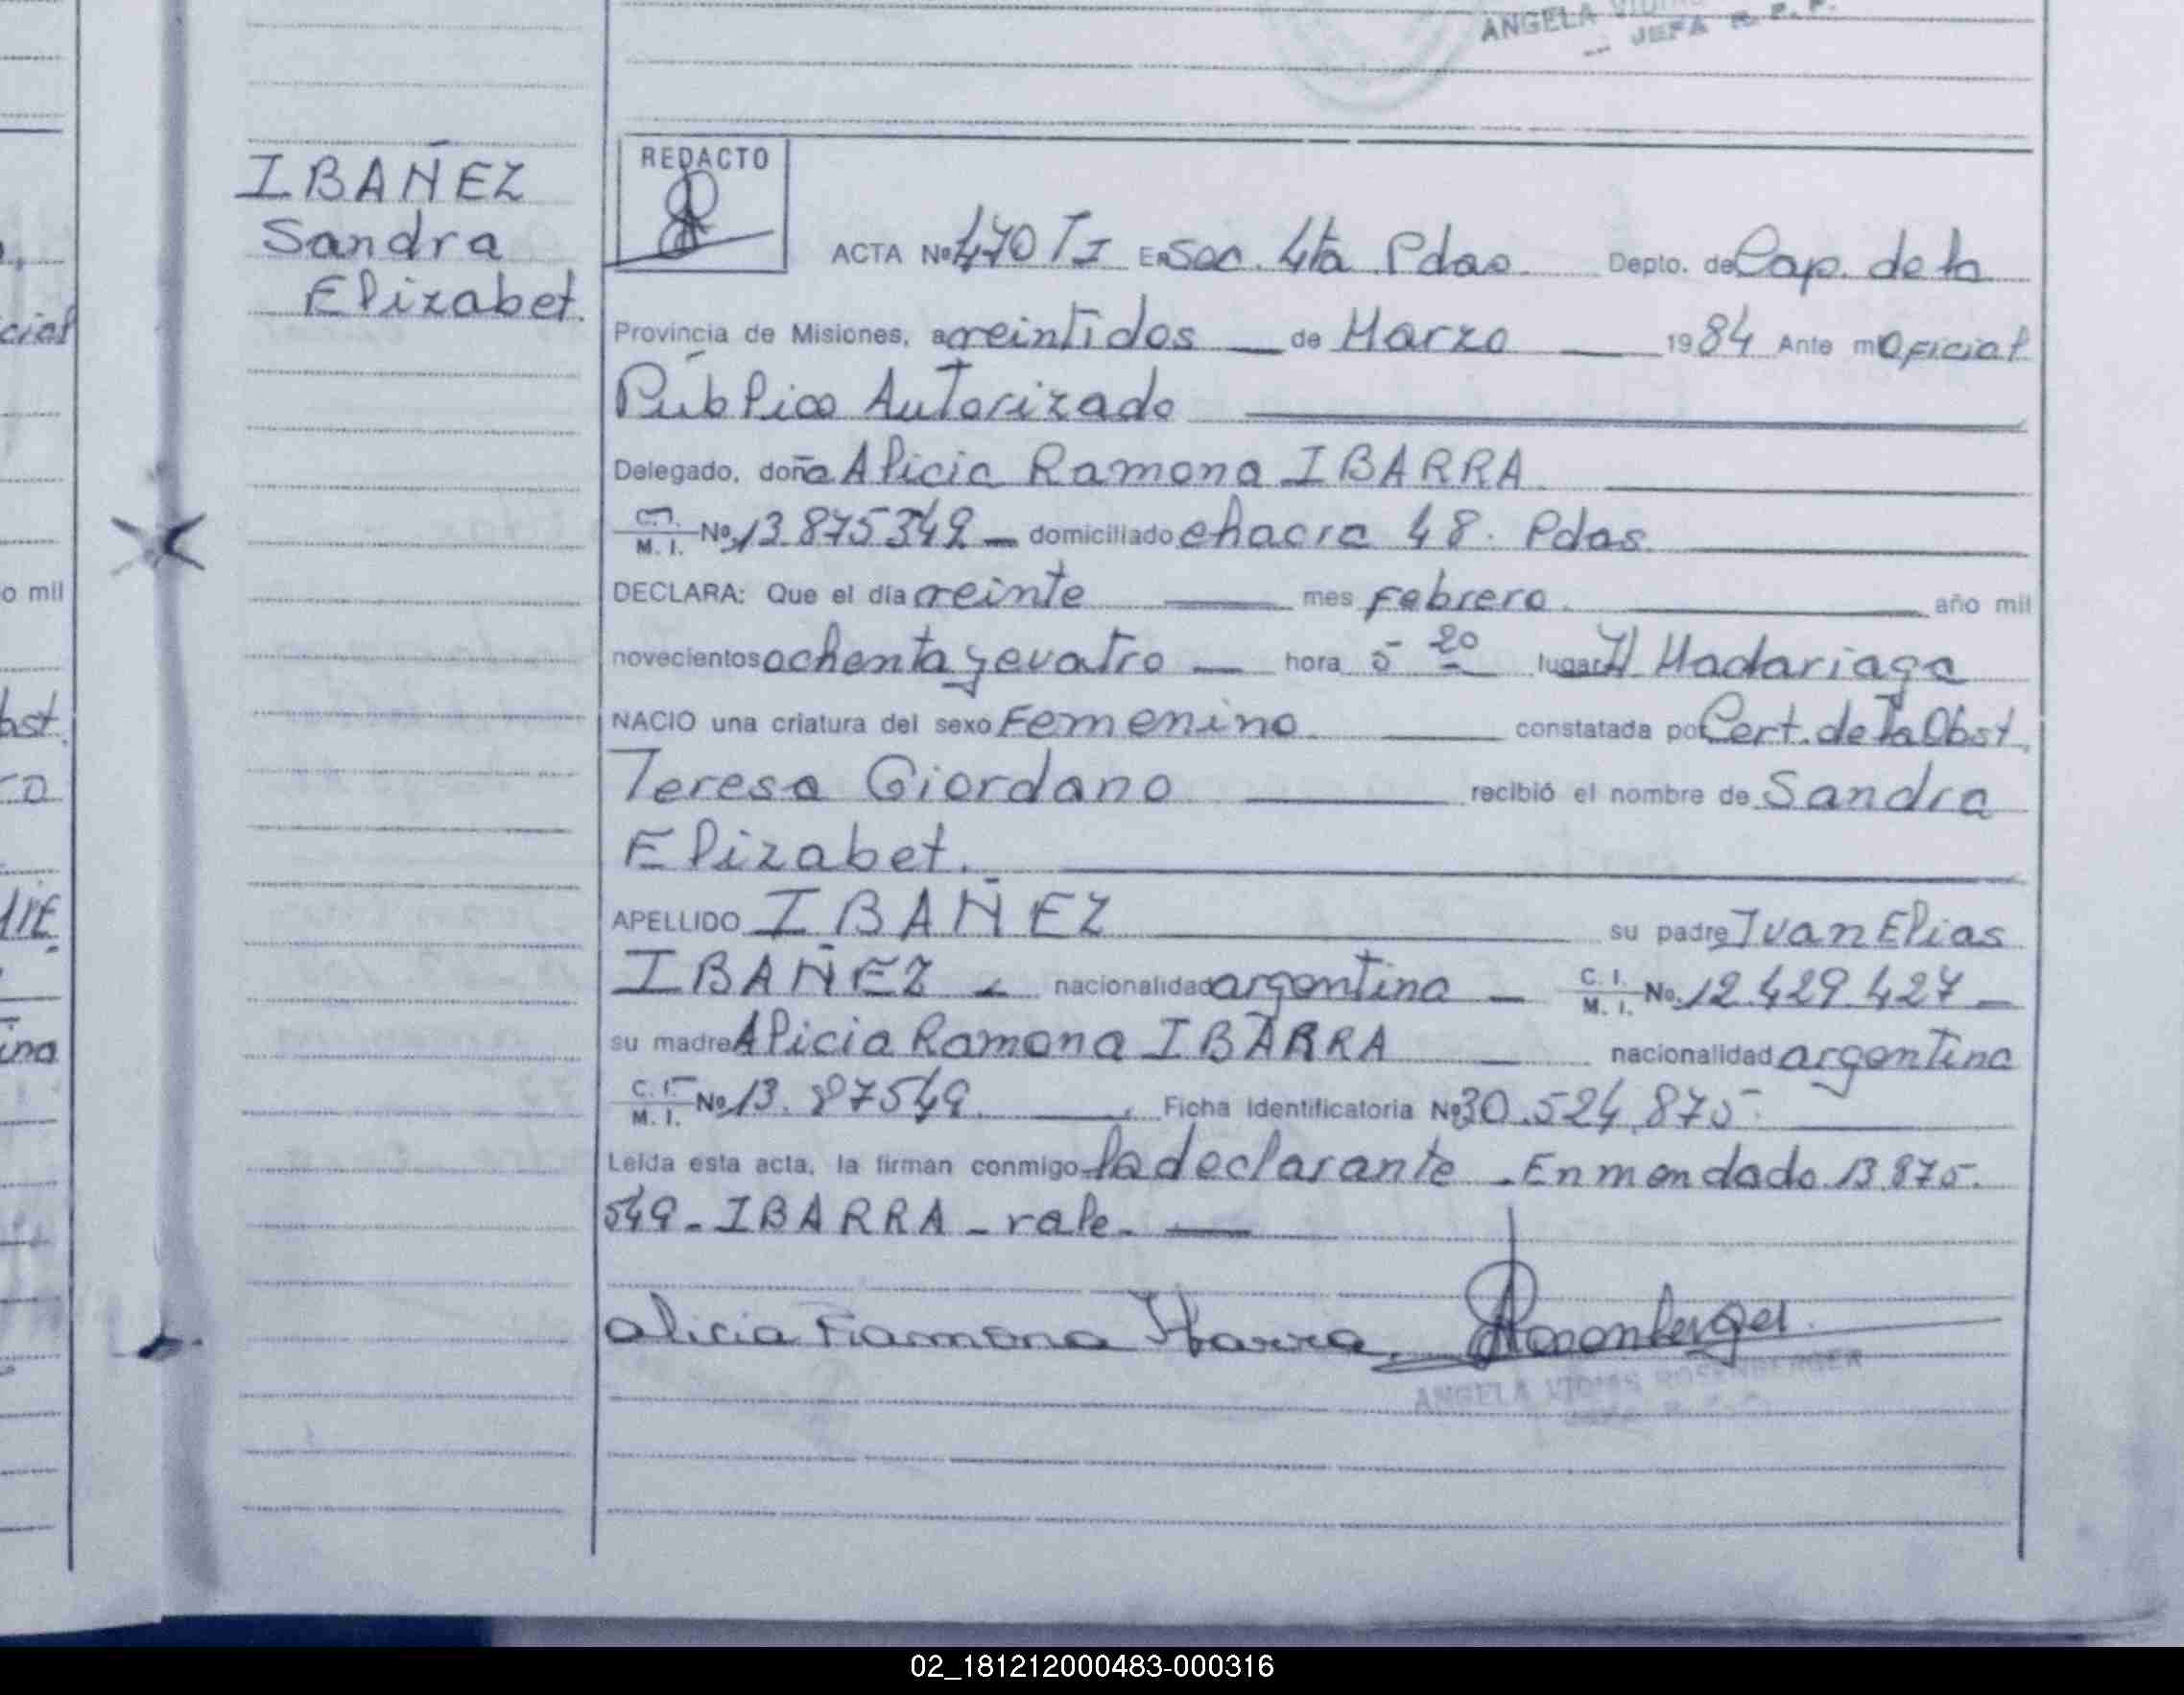 ANGELA
JEFA R. P. P.
IBAÑEZ
Sandra
Elizabet.
REDACTO
ACTA Nº 470 TI En Sec. 4ta Pdas. Depto. de Cap. de la
Provincia de Misiones, a veintidos de Marzo 1984 Ante mi Oficial
Público Autorizado
Delegado, doña Alicia Ramona IBARRA
M. I. Nº 13.875349 domiciliado chacra 48. Pdas.
DECLARA: Que el día veinte mes febrero. año mil
novecientos ochenta y cuatro hora 5 20 lugar H Madariaga
NACIO una criatura del sexo Femenino. constatada por Cert. de la Obst.
Teresa Giordano recibió el nombre de Sandra
Elizabet.
APELLIDO IBAÑEZ su padre Juan Elias
IBAÑEZ nacionalidad argentina C. I. M. I. No. 12.429.427
su madre Alicia Ramona IBARRA nacionalidad argentina
C. I. M. I. Nº 13.87549. Ficha Identificatoria Nº 30.524.875.
Leída esta acta, la firman conmigo la declarante. Enmendado 13.875.
549 - IBARRA - vale.
Alicia Ramona Ibarra. Rosenberger
ANGELA ROSENBERGER
cial
o mil
bst.
ina
02_181212000483-000316